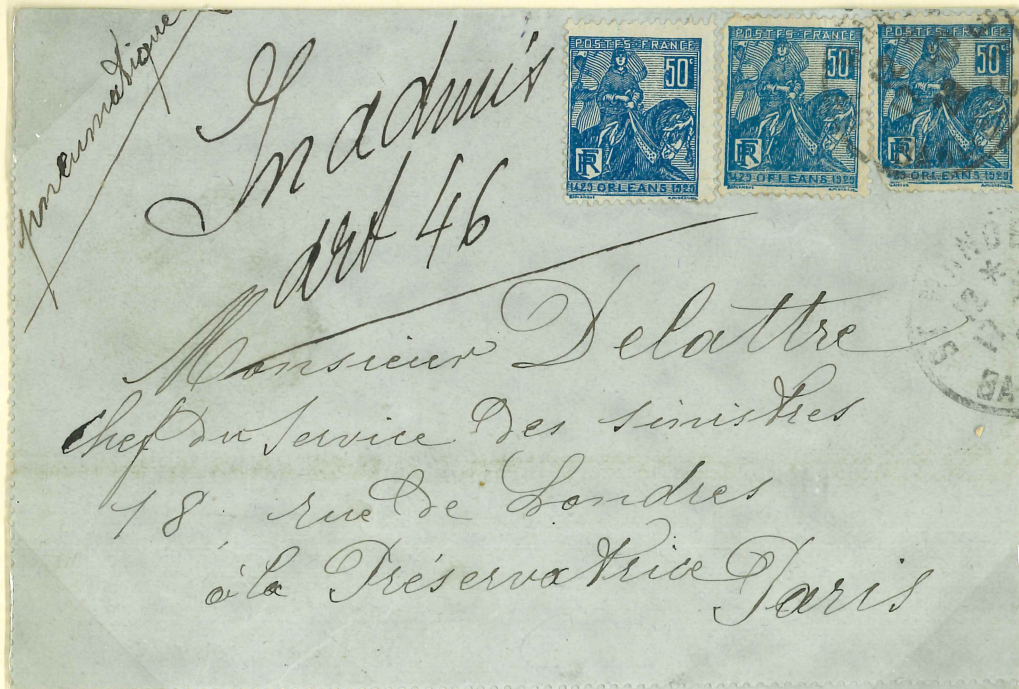 pneumatique
Inadmis
art 46
POSTES-FRANCE
50c
RF
1429 ORLEANS 1929
POSTES-FRANCE
50c
RF
1429 ORLEANS 1929
POSTES-FRANCE
50c
RF
1429 ORLEANS 1929
Monsieur Delattre
chef du Service des sinistres
18 rue de Londres
à la Préservatrice Paris